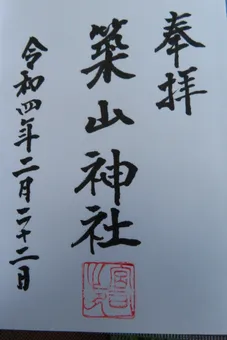 奉拝
築山神社
令和四年二月二十二日
宮司之印